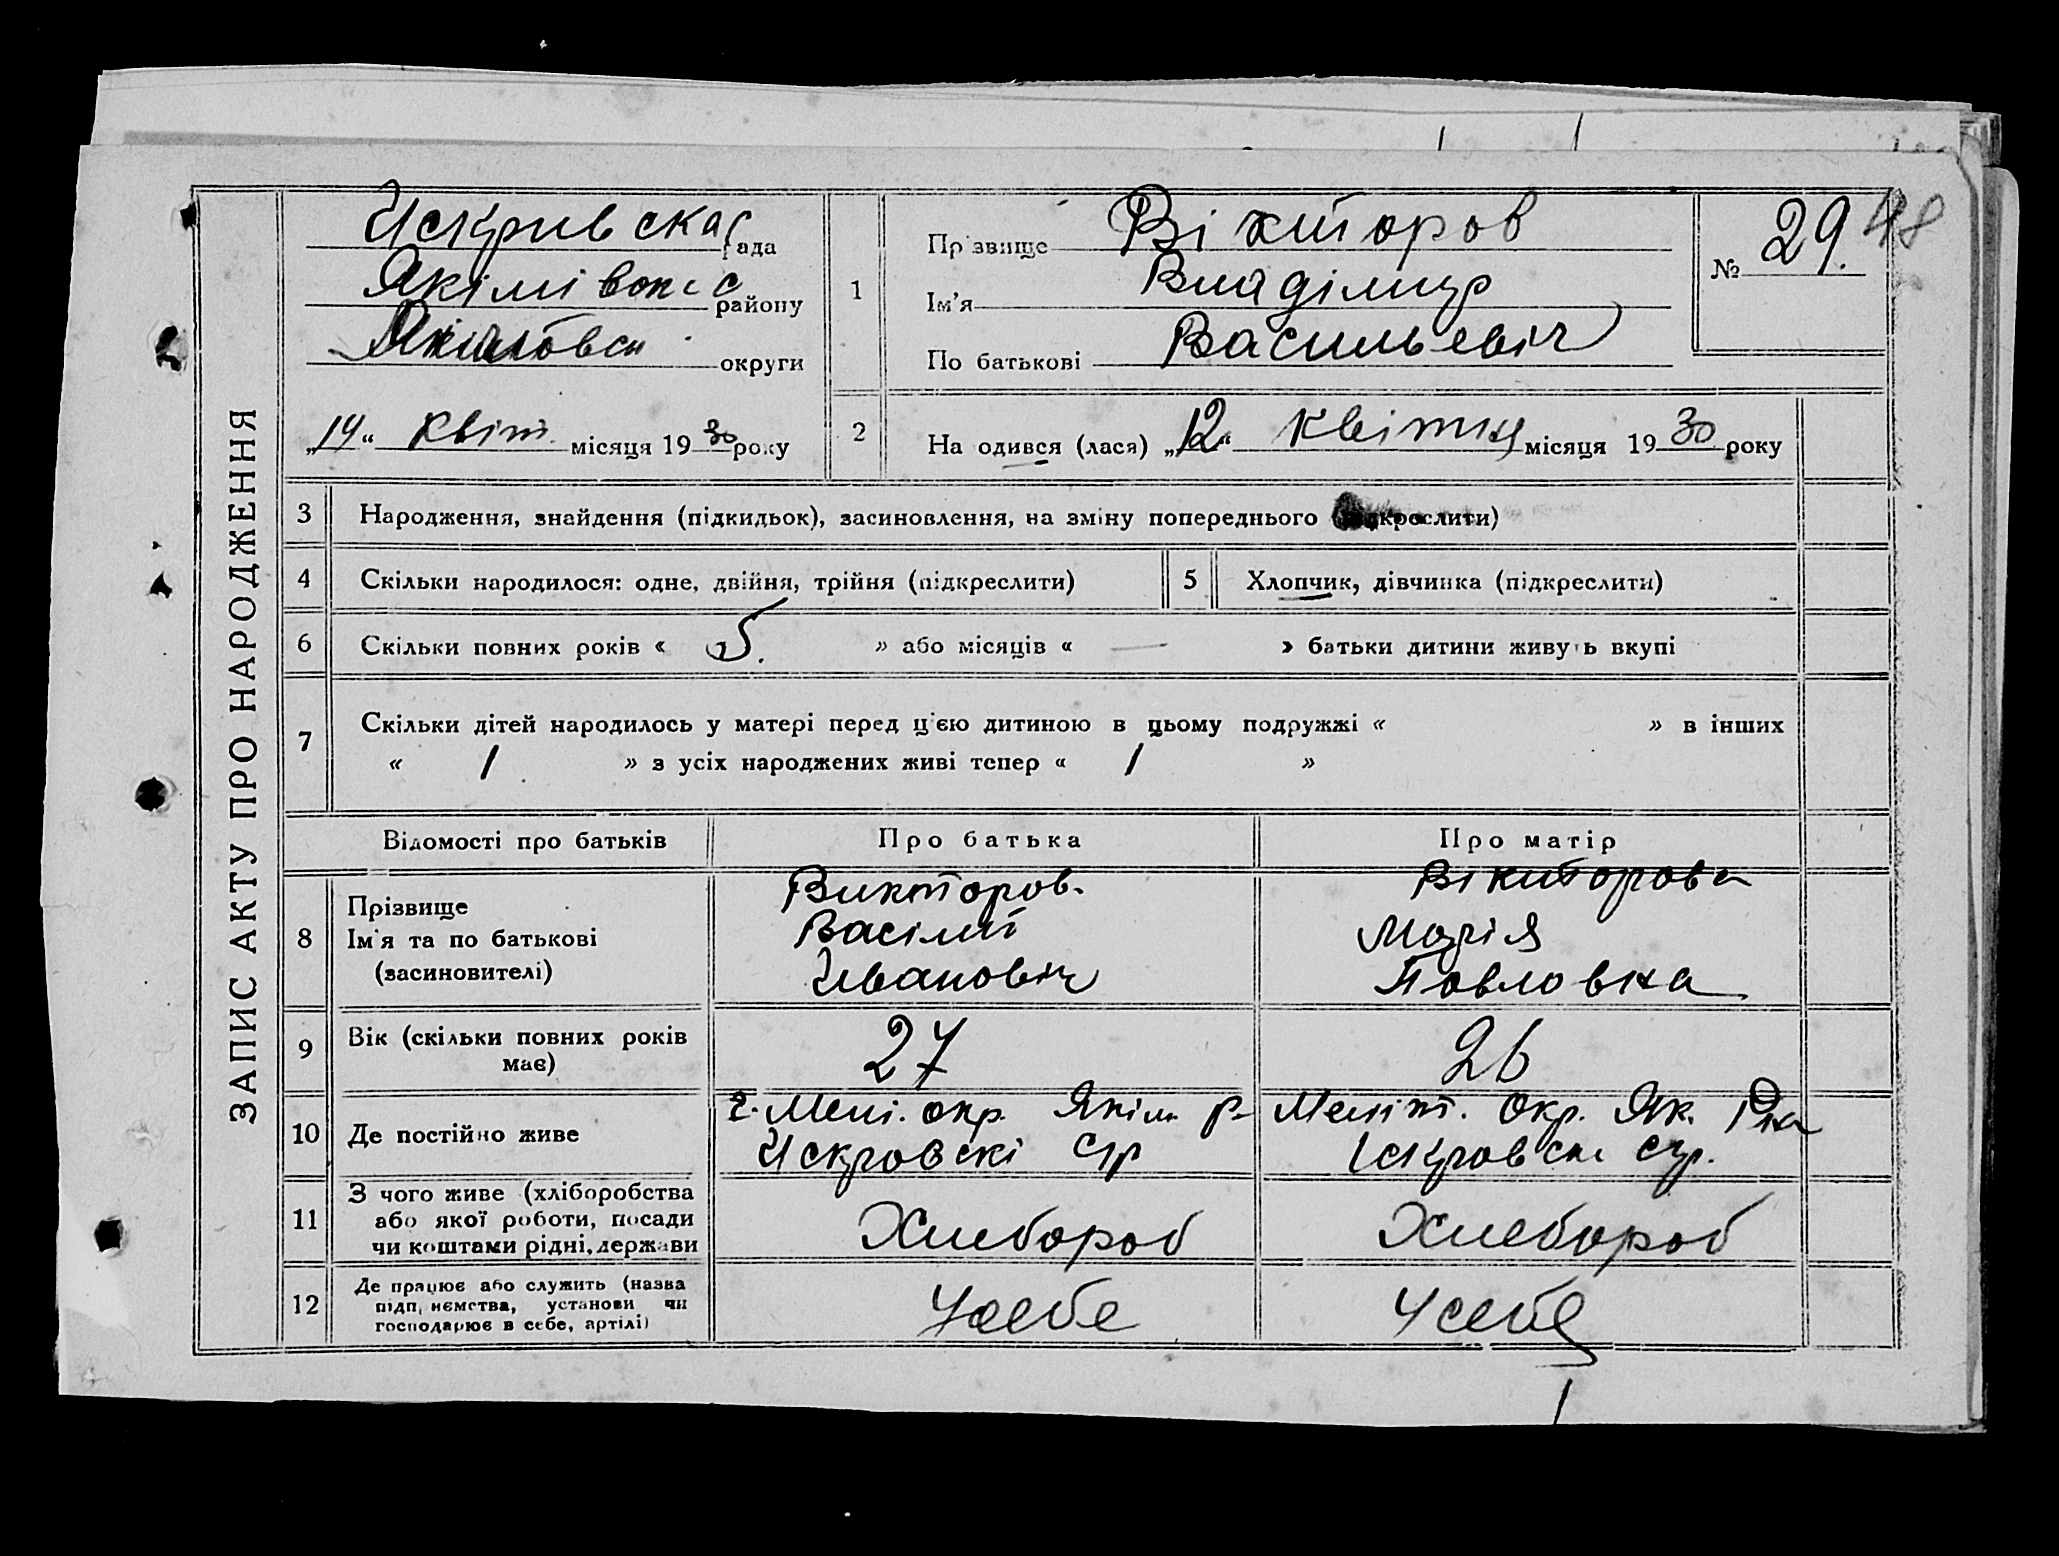 ЗАПИС АКТУ ПРО НАРОДЖЕННЯ
Искривска рада
Якімівск району
округи
„19“ квіт. місяця 1930 року
1
Прізвище Вікторов
Ім’я Владімир
По батькові Васильевіч
№ 29. 48
2
На одився (лася) „12“ квітня місяця 1930 року
3 Народження, знайдення (підкидьок), засиновлення, на зміну попереднього (підкреслити)
4 Скільки народилося: одне, двійня, трійня (підкреслити)
5 Хлопчик, дівчинка (підкреслити)
6 Скільки повних років « 5. » або місяців « — » батьки дитини живуть вкупі
7 Скільки дітей народилось у матері перед цією дитиною в цьому подружжі « » в інших
« 1 » з усіх народжених живі тепер « 1 »
Відомості про батьків Про батька Про матір
8 Прізвище
Ім’я та по батькові
(засиновителі)
Викторов.
Васілий
Иванов­іч
Вікторова
Марія
Павловна
9 Вік (скільки повних років має)
27
26
10 Де постійно живе
г. Мелі. окр. Якім. р-
Искровскі с/р
Меліт. Окр. Як. Рна
Іскровск. с/р.
11 З чого живе (хліборобства
або якої роботи, посади
чи коштами рідні, держави
Хлебороб
Хлебороб
12 Де працює або служить (назва
підприємства, установи чи
господарює в себе, артілі)
У себе
У себе